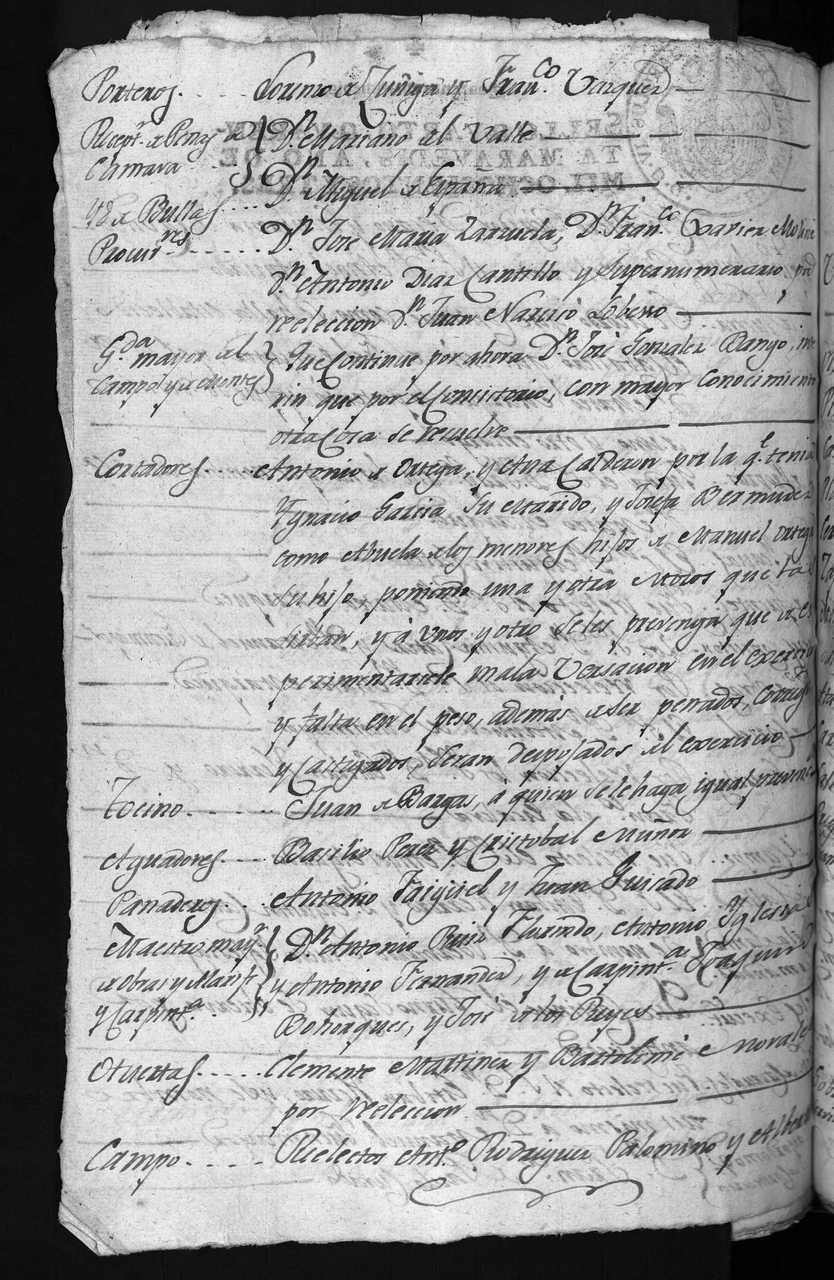 Porteros . . . . Lorenzo de Zuñiga y Franco. Vazquez
Recepr. de Penas de Dn. Mariano del Valle
Camara . . .
Yd. de Bullas . . . . Dn. Miguel de España
Procurres. . . . . . . Dn. José Maria Zarzuela, Dn. Franco. Xavier Molin
Dn. Antonio Diaz Cantillo y Supernumerario, por
reeleccion Dn. Juan Narciso Lobero
Gda. mayor del Que Continue por ahora Dn. José Gonzalez Bango, inte
Campo y de Montes rin que por el Concistorio, con mayor Conocimiento
otra cosa se resuelve
Cortadores . . . . Antonio de Ortega, y Ana Calderon por la qe. tenia
Ygnacio Garcia, Su Marido, y Josefa Bermudez
como Abuela de los menores hijos de Manuel Ortega
su hijo, poniendo una y otra Mozos que la
sirvan, y á unos y otro se les prevenga que de es
perimentarsele mala Versacion en el exercicio
y falta en el peso, además de ser penados,
y Castigados, Seran depuestos del exercicio
Tocino . . . . . . . Juan de Bargas, á quien se le haga igual
Aguadores . . . . Basilio Perez y Cristobal Muñoz
Panaderos . . . Antonio y Juan Guisado
Maestros mays. Dn. Antonio Ruiz Florindo, Antonio Yglesia
de obras y y Antonio Fernandez, y de Carpinta. Joaquin
y Carpinta. Bohorques, y José de los Reyes
Huertas . . . . . Clemente Martinez y Bartolomé Morales
por reeleccion
Campo . . . . . Reelectos Anto. Rodriguez Palomino y